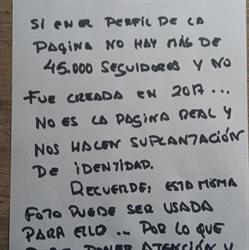 SI EN EL PERFIL DE LA
PAGINA NO HAY MÁS DE
45.000 SEGUIDORES Y NO
FUE CREADA EN 2017...
NO ES LA PAGINA REAL Y
NOS HACEN SUPLANTACIÓN
DE IDENTIDAD.
RECUERDE; ESTA MISMA
FOTO PUEDE SER USADA
PARA ELLO... POR LO QUE
PONER ATENCIÓN Y